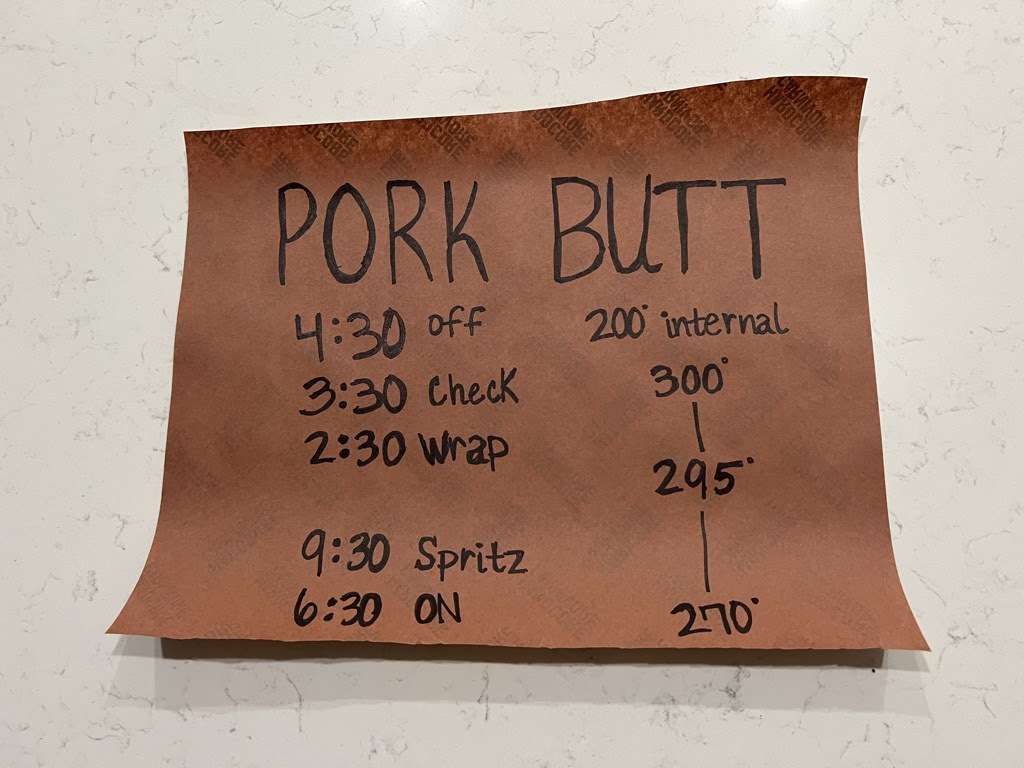 PORK BUTT
4:30 off 200° internal
3:30 Check 300°
2:30 Wrap 295°
9:30 Spritz
6:30 ON 270°